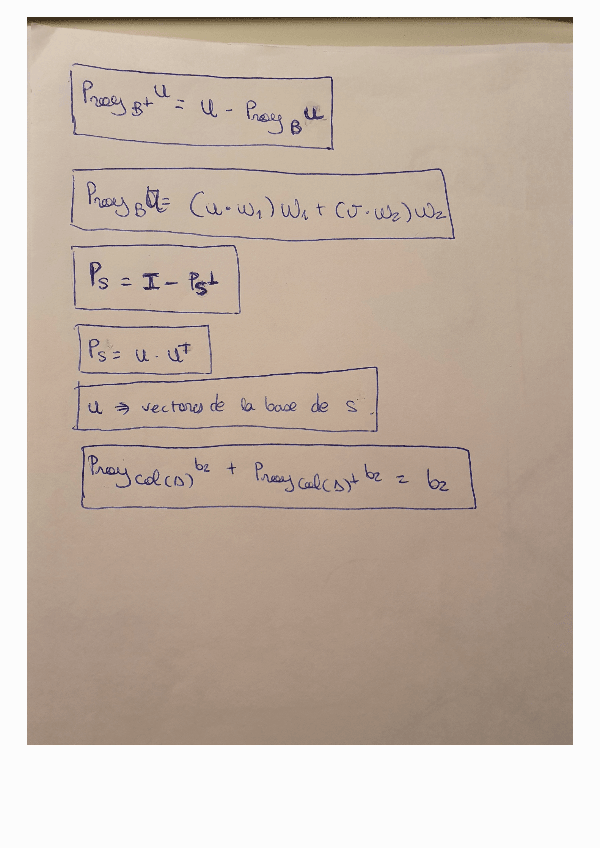 Proy B⊥ u = u - Proy B u
Proy B U = (u · w₁) w₁ + (v · w₂) w₂
Ps = I - Ps⊥
Ps = u · uᵀ
u ⇒ vectores de la base de S
Proy Col(A) b₂ + Proy Col(A)⊥ b₂ = b₂